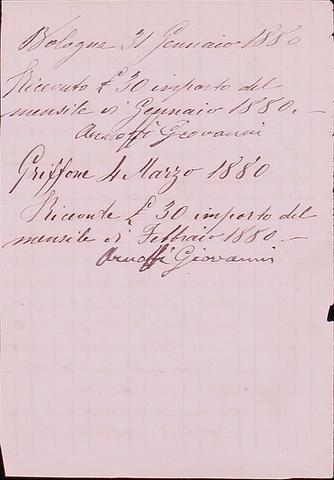 Bologna 31 Gennaio 1880
Ricevuto £ 30 importo del
mensile di Gennaio 1880. —
Arnoffi Giovanni
Griffone 4 Marzo 1880
Ricevute £ 30 importo del
mensile di Febbraio 1880. —
Arnoffi Giovanni